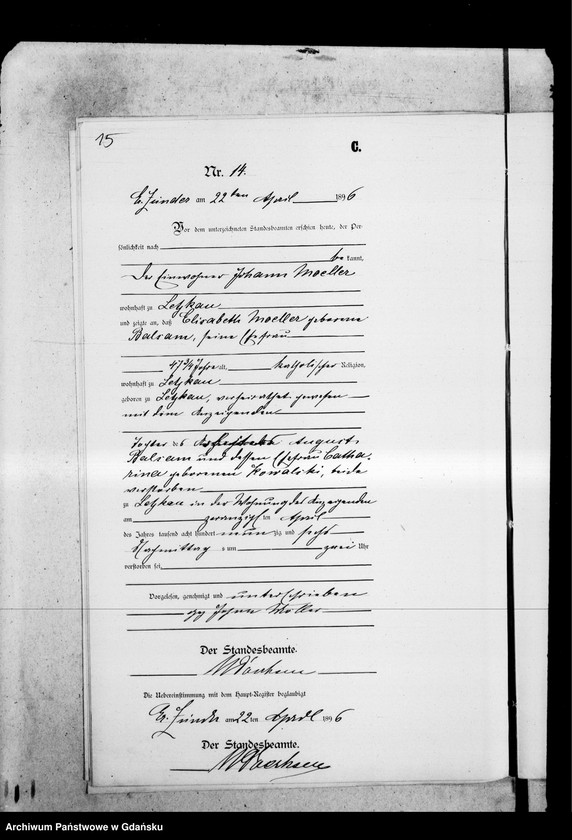 15
C.
Nr. 14.
Gr. Zünder am 22ten April 1896
Vor dem unterzeichneten Standesbeamten erschien heute, der Per-
sönlichkeit nach
be kannt,
Der Einwohner Johann Moeller
wohnhaft zu Letzkau
und zeigte an, daß Elisabeth Moeller geborene
Balsam, seine Ehefrau
47 3/4 Jahre alt, katholischer Religion,
wohnhaft zu Letzkau
geboren zu Letzkau, verheirathet gewesen
mit dem Anzeigenden
Tochter des August
Balsam und dessen Ehefrau Catha-
rina geborenen Kowalski, beide
verstorben
zu Letzkau in der Wohnung des Anzeigenden
am zwanzigsten April
des Jahres tausend acht hundert neunzig und sechs
Nachmittag s um zwei Uhr
verstorben sei
Vorgelesen, genehmigt und unterschrieben
gez Johann Moller
Der Standesbeamte.
Die Uebereinstimmung mit dem Haupt-Register beglaubigt
Gr. Zünder am 22ten April 1896
Der Standesbeamte.
Archiwum Państwowe w Gdańsku